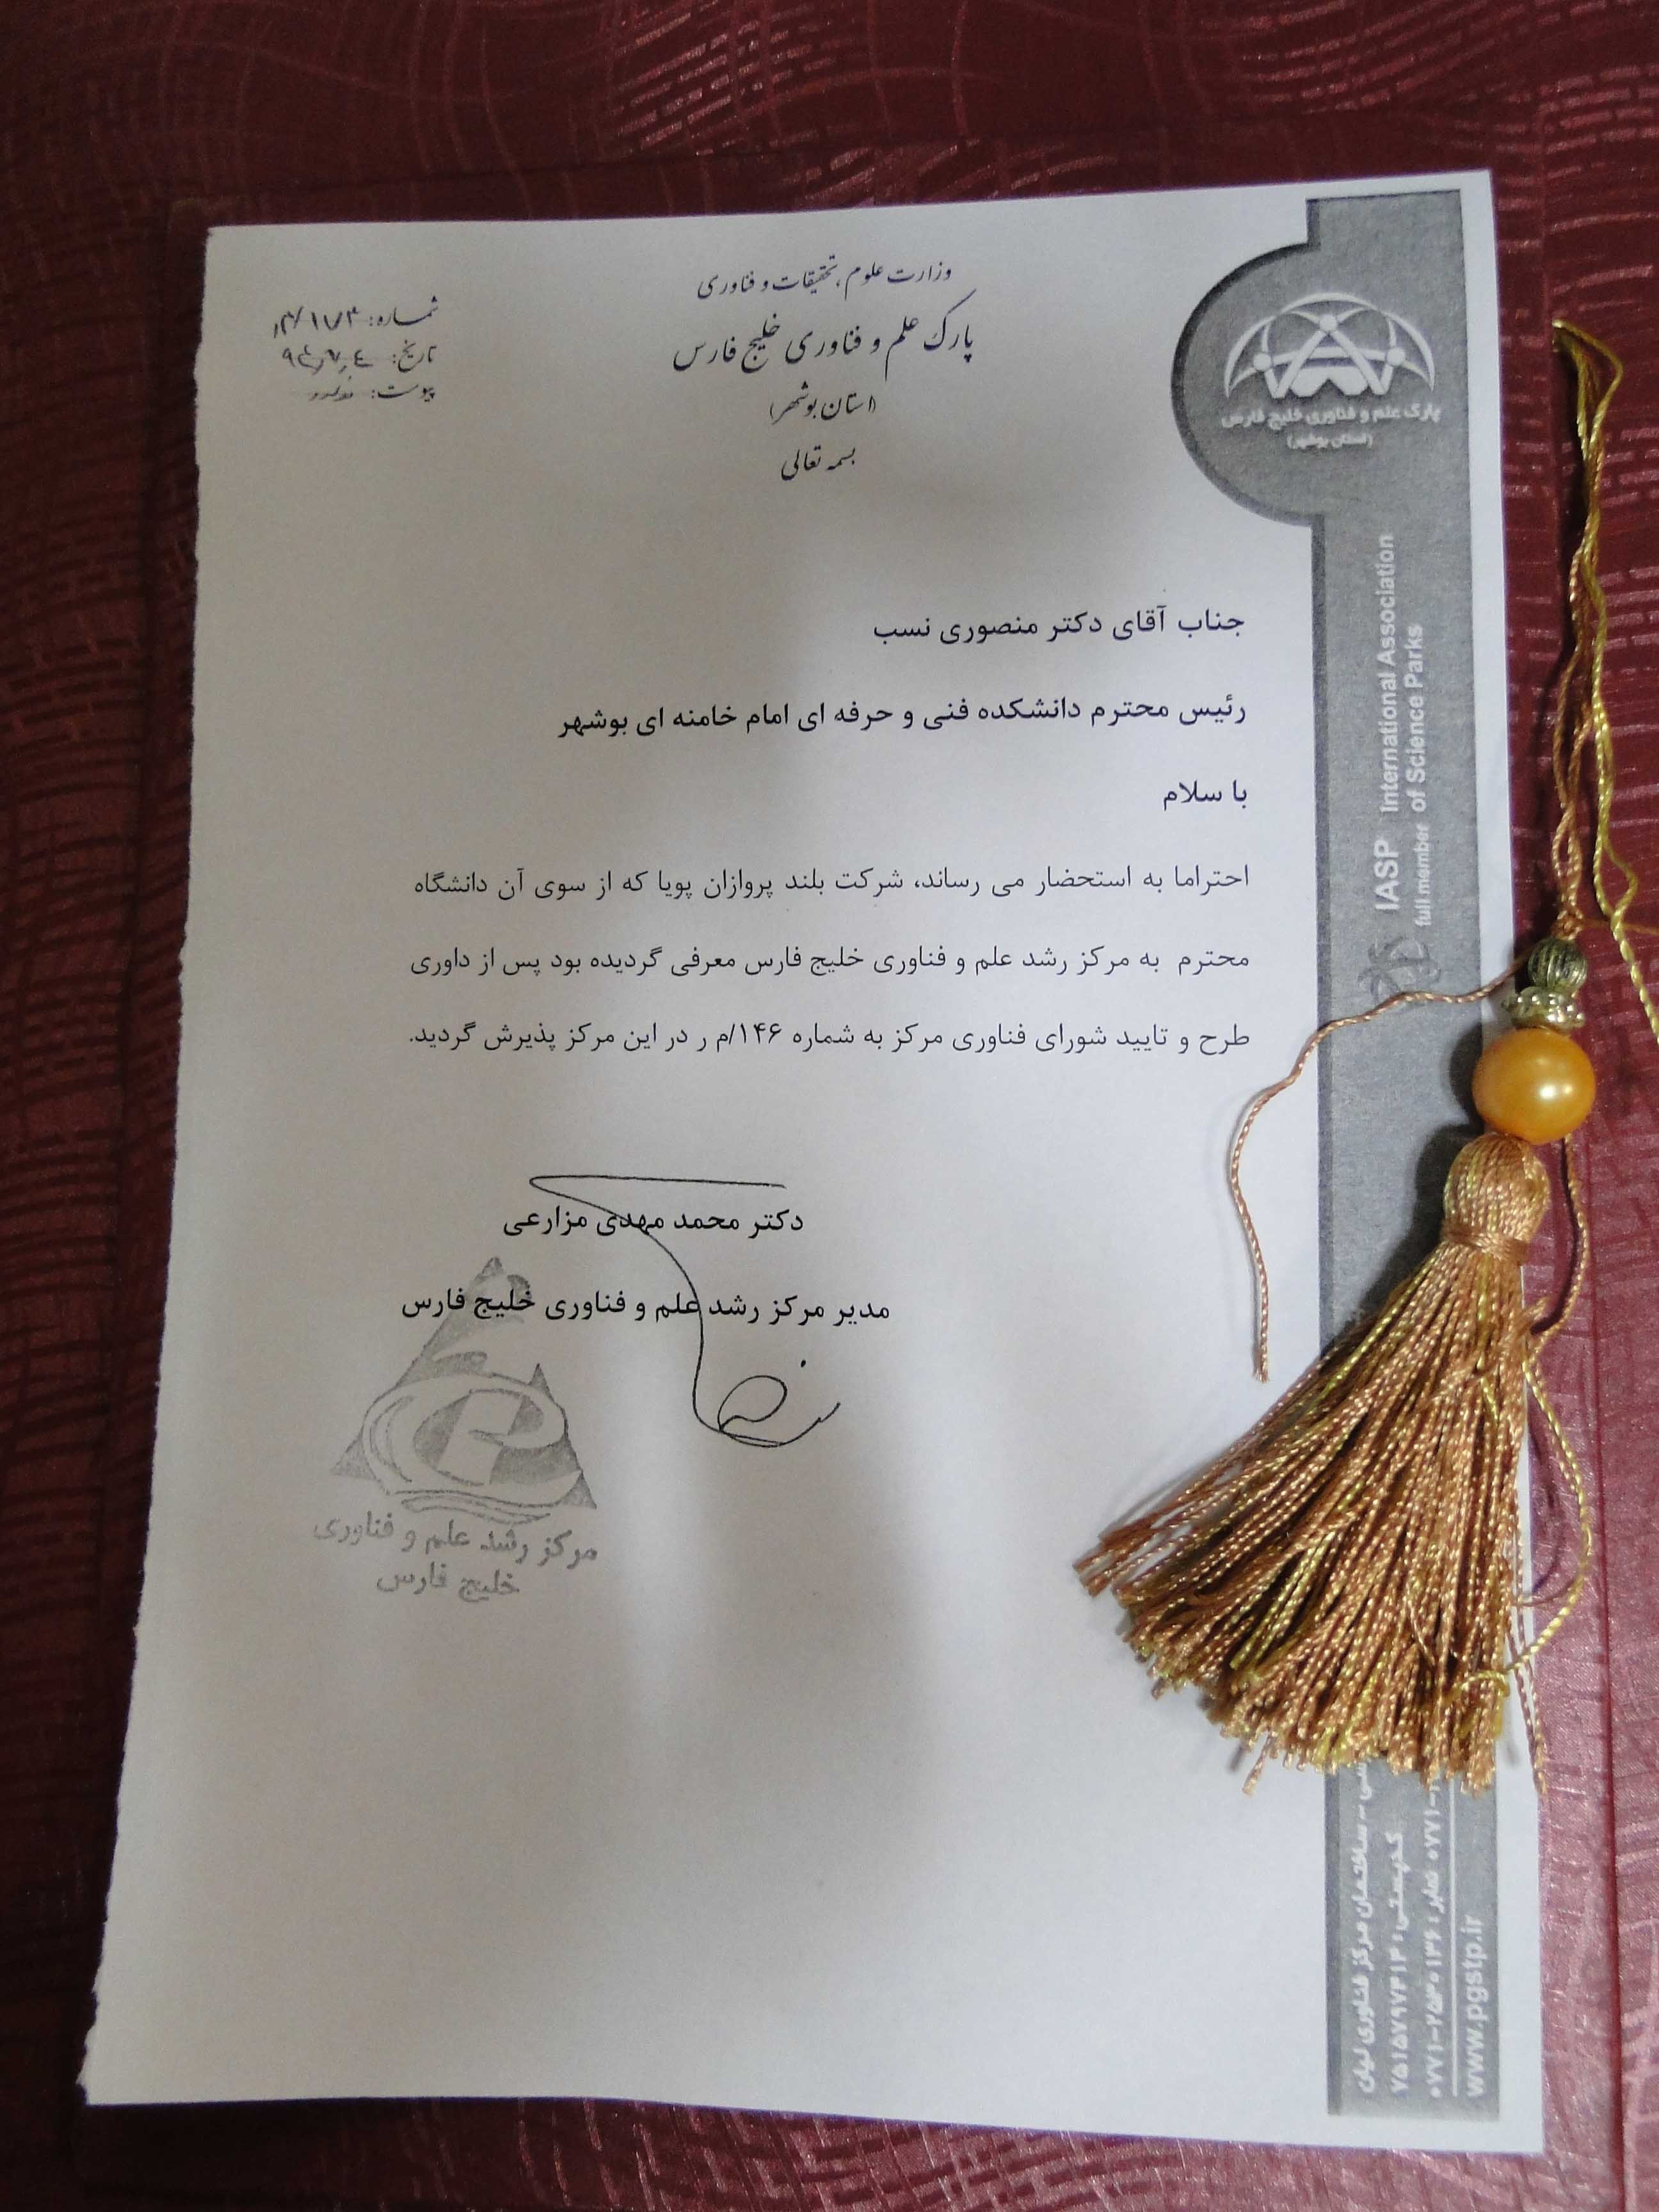 وزارت علوم، تحقیقات و فناوری
پارک علم و فناوری خلیج فارس
(استان بوشهر)
بسمه تعالی
شماره:
تاریخ:
پیوست: ندارد
پارک علم و فناوری خلیج فارس
(استان بوشهر)
IASP International Association
full member of Science Parks
جناب آقای دکتر منصوری نسب
رئیس محترم دانشکده فنی و حرفه ای امام خامنه ای بوشهر
با سلام
احتراما به استحضار می رساند، شرکت بلند پروازان پویا که از سوی آن دانشگاه
محترم به مرکز رشد علم و فناوری خلیج فارس معرفی گردیده بود پس از داوری
طرح و تایید شورای فناوری مرکز به شماره ۱۴۶/م ر در این مرکز پذیرش گردید.
دکتر محمد مهدی مزارعی
مدیر مرکز رشد علم و فناوری خلیج فارس
مرکز رشد علم و فناوری
خلیج فارس
ساختمان مرکز فناوری لیان
کدپستی: ۷۵۱۵۷۹۷۴۱۳
نمابر: ۰۷۷۱-۲۵۳۰۱۳۶
www.pgstp.ir